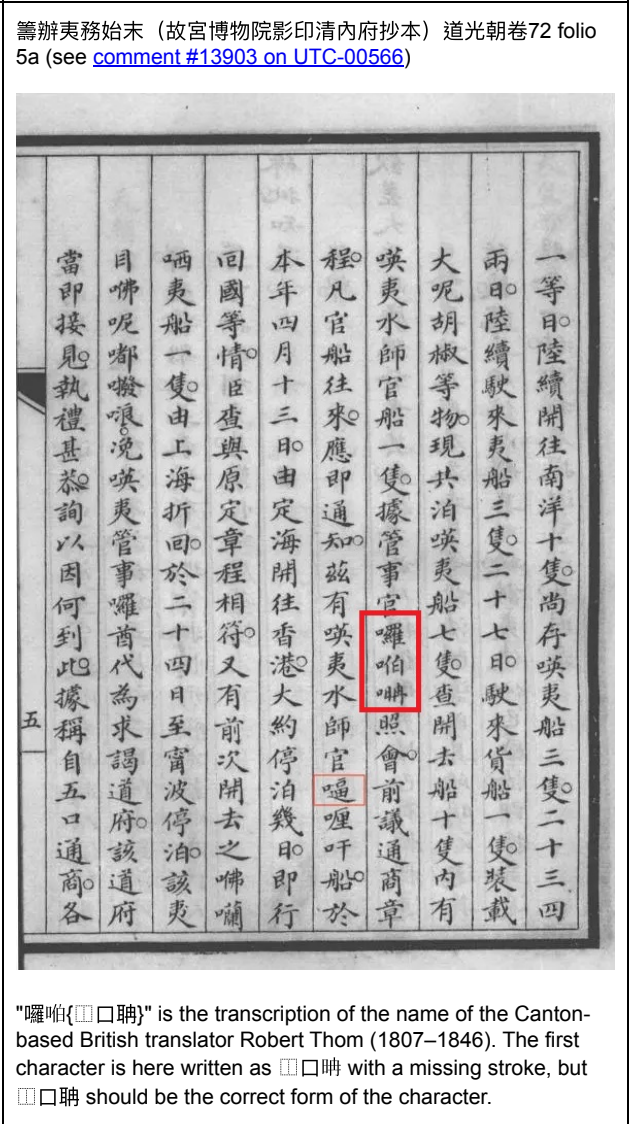 籌辦夷務始末（故宮博物院影印清內府抄本）道光朝卷72 folio
5a (see comment #13903 on UTC-00566)
一等日。陸續開往南洋十隻。尚存𠸄夷船三隻。二十三四
兩日。陸續駛來夷船三隻。二十七日。駛來貨船一隻。裝載
大呢胡椒等物。現共泊𠸄夷船七隻。查開去船十隻內有
𠸄夷水師官船一隻。據管事官囉⿰口伯⿰口冉照會。前議通商章
程。凡官船往來。應即通知。茲有𠸄夷水師官⿰口逼喱吁船。於
本年四月十三日。由定海開往香港。大約停泊幾日。即行
回國等情。臣查與原定章程相符。又有前次開去之咈囒
哂夷船一隻。由上海折回。於二十四日至甯波停泊。該夷
目咈呢嘟撥哏。浼𠸄夷管事囉酋代為求謁道府。該道府
當即接見。執禮甚恭。詢以因何到此。據稱自五口通商。各
五
"囉⿰口伯{⿰口聃}" is the transcription of the name of the Canton-
based British translator Robert Thom (1807–1846). The first
character is here written as ⿰口 with a missing stroke, but
⿰口聃 should be the correct form of the character.